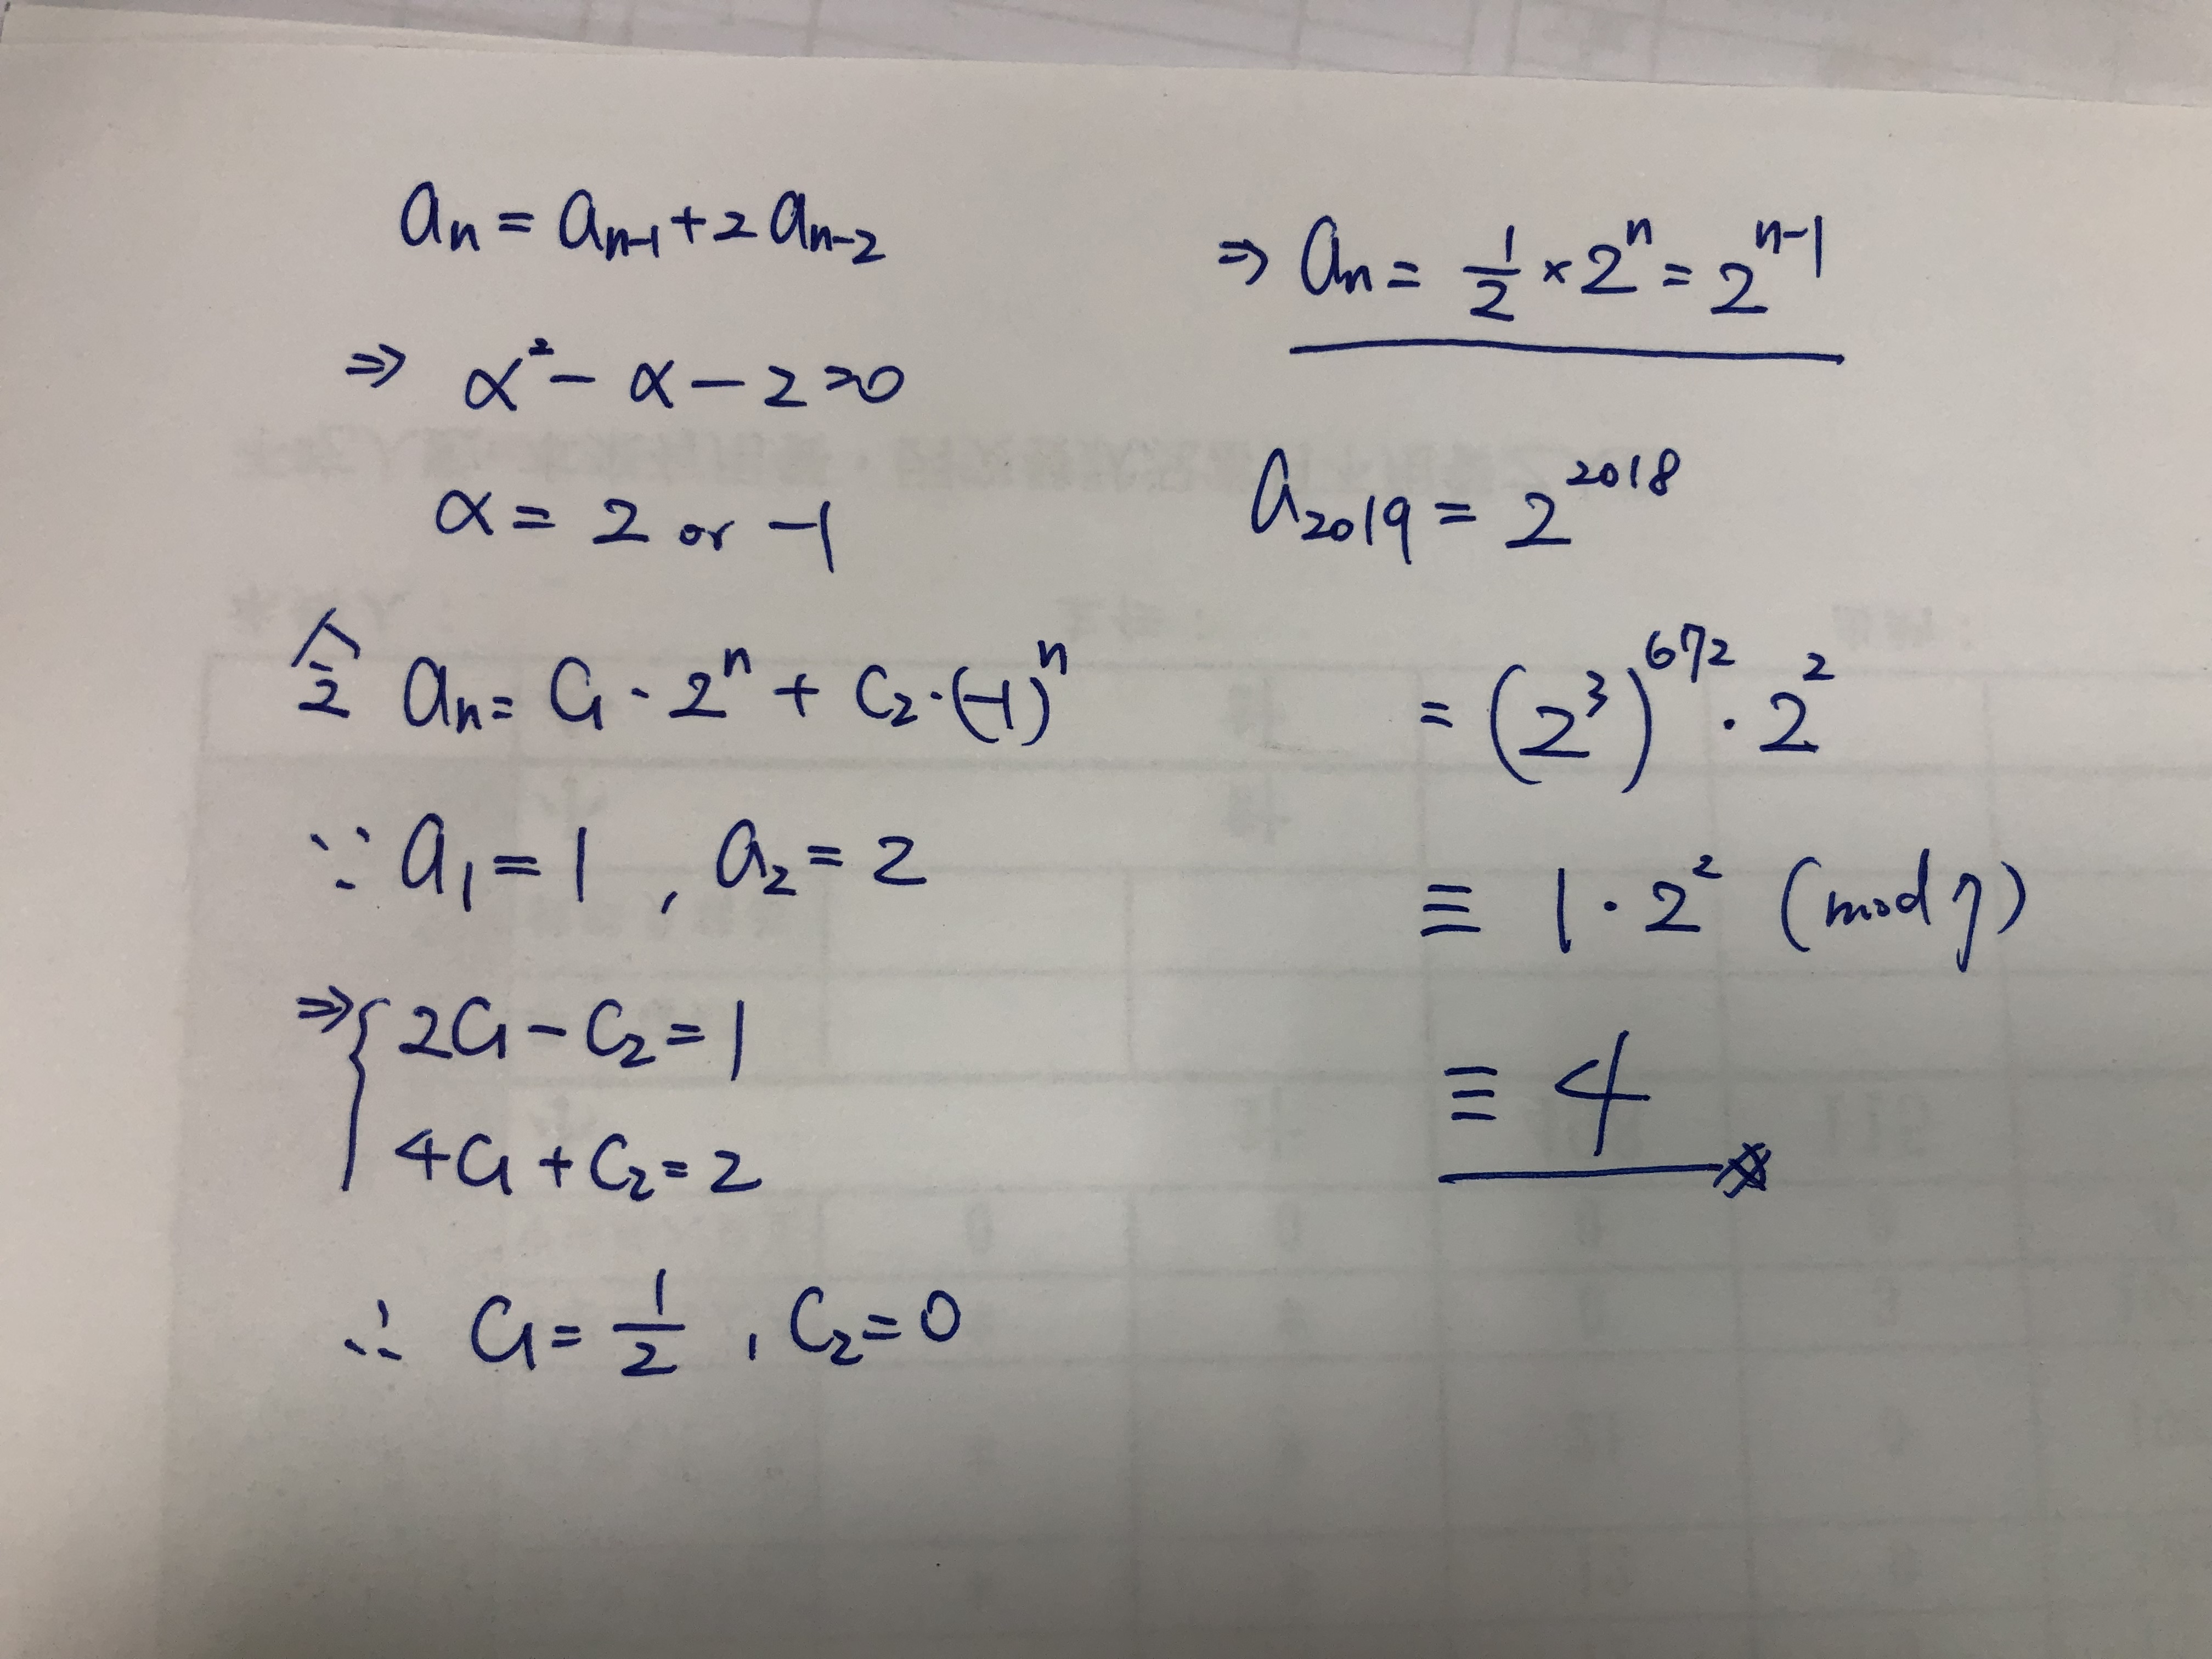 aₙ = aₙ₋₁ + 2aₙ₋₂
⇒ α² - α - 2 = 0
α = 2 or -1
令 aₙ = C₁·2ⁿ + C₂·(-1)ⁿ
∵ a₁ = 1 , a₂ = 2
⇒ { 2C₁ - C₂ = 1
4C₁ + C₂ = 2
∴ C₁ = 1/2 , C₂ = 0
⇒ aₙ = 1/2 × 2ⁿ = 2ⁿ⁻¹
a₂₀₁₉ = 2²⁰¹⁸
= (2³)⁶⁷² · 2²
≡ 1 · 2² (mod 7)
≡ 4